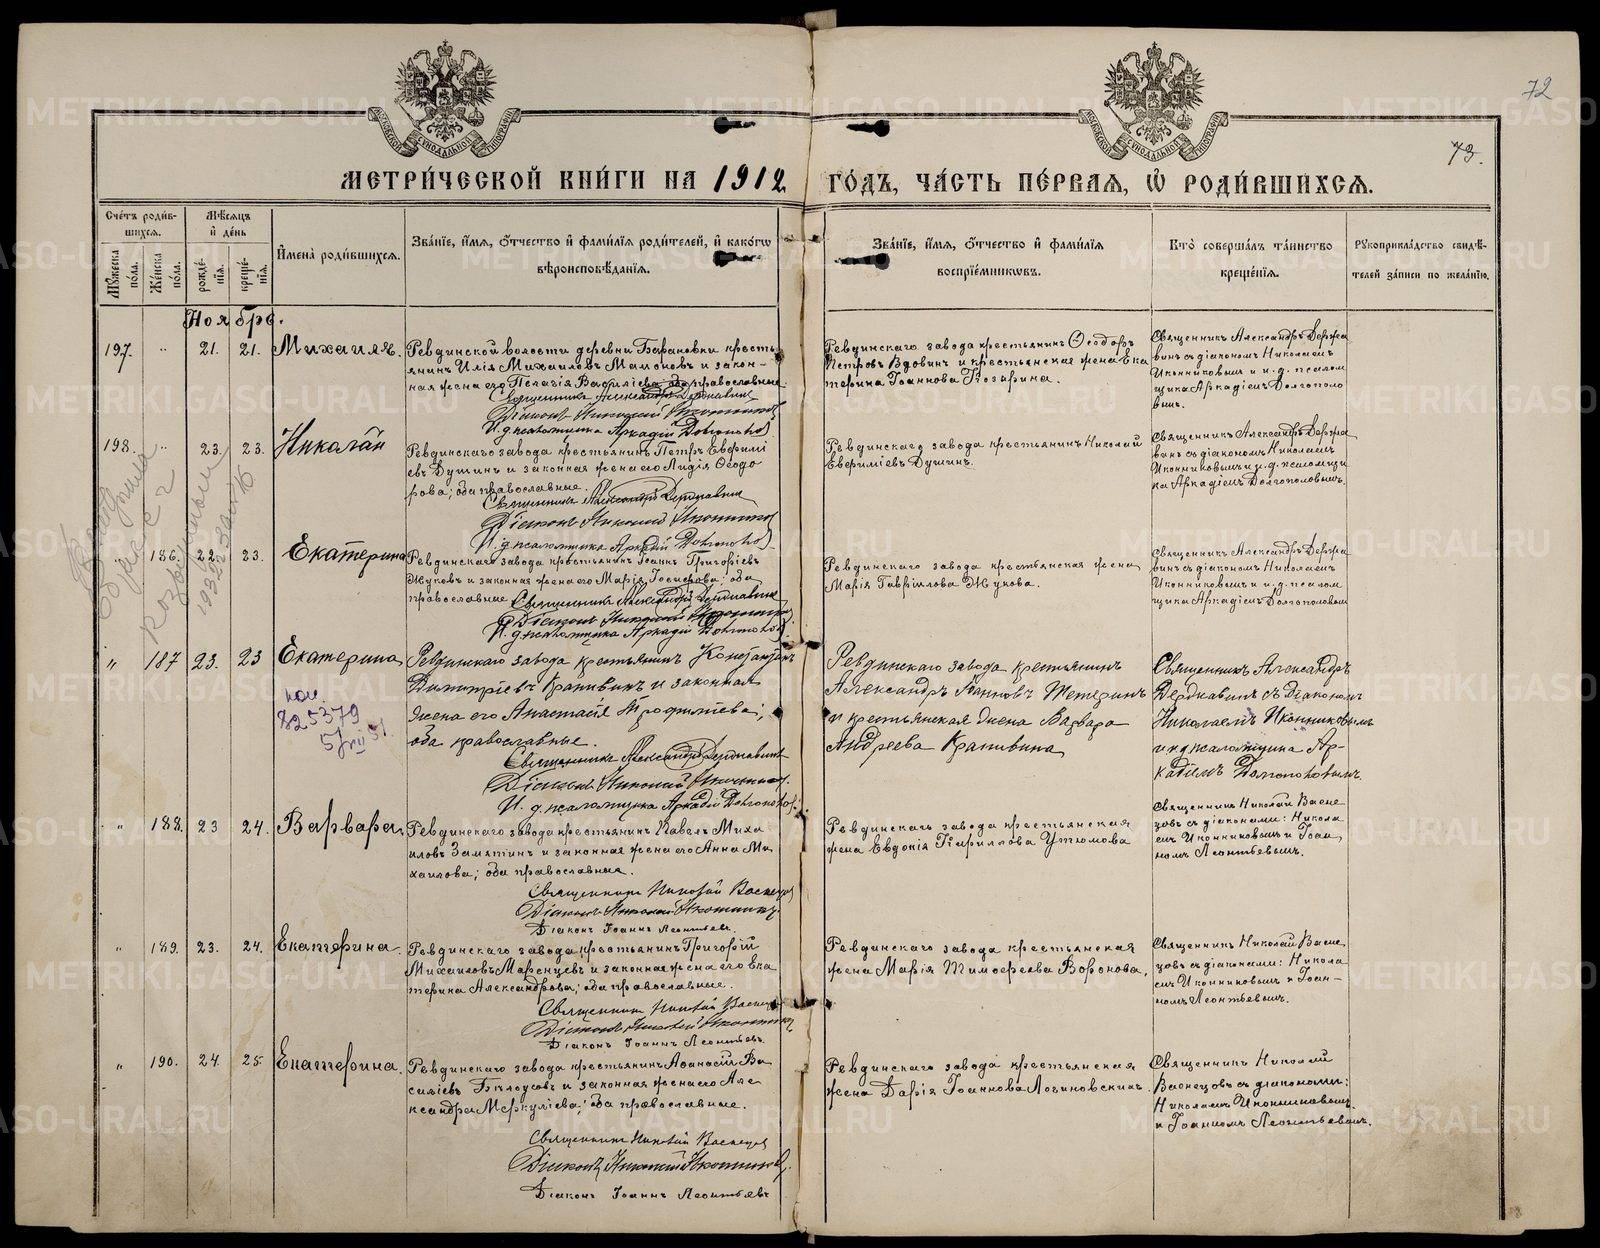 72
73.
МОСКОВСКОЙ СѴНОДАЛЬНОЙ ТИПОГРАФІИ
МОСКОВСКОЙ СѴНОДАЛЬНОЙ ТИПОГРАФІИ
МЕТРИ́ЧЕСКОЙ КНИ́ГИ НА 1912 ГО́ДЪ, ЧА́СТЬ ПЕ́РВАЯ, Ѽ РОДИ́ВШИХСЯ.
Сче́тъ роди́в-
шихся.
Мꙋ́жеска по́ла.
Же́нска по́ла.
Мѣ́сяцъ
и҆ де́нь
рожде́-
нїя.
креще́-
нїя.
И҆мена̀ роди́вшихся.
Зва́нїе, и҆́мя, ѻ҆́тчество и҆ фами́лїя роди́телей, и҆ како́гѡ
вѣроисповѣ́данїя.
Зва́нїе, и҆́мя, ѻ҆́тчество и҆ фами́лїя
воспрїе́мникѡвъ.
Кто̀ соверша́лъ та́инство
креще́нїя.
Рꙋкоприкла́дство свидѣ́-
телей за́писи по жела́нїю.
Ноябре.
197. " 21. 21. Михаилъ.
Ревдинской волости деревни Барановки кресть-
янинъ Илія Михаиловъ Мамоновъ и закон-
ная жена его Пелагія Василіева, оба православные.
Священникъ Александръ Державинъ
Діаконъ Николай Иконниковъ
И. д. псаломщика Аркадій Долгополов
Ревдинскаго завода крестьянинъ Ѳеодоръ
Петровъ Вдовинъ и крестьянская жена Ека
терина Іоаннова Козырина.
Священникъ Александръ Держа
винъ съ діакономъ Николаемъ
Иконниковымъ и и. д. псалом
щика Аркадіемъ Долгополо
вымъ.
198. " 23. 23. Николай
Ревдинскаго завода крестьянинъ Петръ Евфиміе
евъ Душинъ и законная жена его Лидія Ѳеодо
рова; оба православные.
Священникъ Александръ Державинъ
Діаконъ Николай Иконниковъ
И. д. псаломщика Аркадій Долгополов
Ревдинскаго завода крестьянинъ Николай
Евфиміевъ Душинъ.
Священникъ Александръ Держа
винъ съ діакономъ Николаемъ
Иконниковымъ и и. д. псаломщи
ка Аркадіемъ Долгополовымъ.
186. 22. 23. Екатерина
Ревдинскаго завода крестьянинъ Іоаннъ Григоріевъ
Жуковъ и законная жена его Марія Іосифова; оба
православные
Священникъ Александръ Державинъ
Діаконъ Николай Иконниковъ
И. д. псаломщика Аркадій Долгополов
Ревдинскаго завода крестьянская жена
Марія Гавріилова Жукова.
Священникъ Александръ Держа
винъ съ діакономъ Николаемъ
Иконниковымъ и и. д. псалом
щика Аркадіемъ Долгополовым
" 187 23. 23 Екатерина
825379
Ревдинскаго завода крестьянинъ Константинъ
Димитріевъ Крапивинъ и законная
жена его Анастасія Трофимеева;
оба православные.
Священникъ Александръ Державинъ
Діаконъ Николай Иконниковъ.
И. д. псаломщика Аркадій Долгополов.
Ревдинскаго завода крестьянинъ
Александръ Іоанновъ Тетеринъ
и крестьянская жена Варвара
Андреева Крапивина
Священникъ Александръ
Державинъ съ діакономъ
Николаемъ Иконниковымъ
и и.д. псаломщика Ар-
кадіемъ Долгополовымъ.
" 188. 23 24. Варвара
Ревдинскаго завода крестьянинъ Павелъ Миха
иловъ Замятинъ и законная жена его Анна Ми
хаилова; оба православные.
Священникъ Николай Васнецов
Діаконъ Николай Иконниковъ.
Діаконъ Іоаннъ Леонтьевъ.
Ревдинскаго завода крестьянская
жена Евдокія Кириллова Утюмова
Священникъ Николай Васне
цовъ съ діаконами: Никола
емъ Иконниковымъ и Іоан
номъ Леонтьевымъ.
" 189. 23. 24. Екатерина.
Ревдинскаго завода крестьянинъ Григорій
Михаиловъ Маренцевъ и законная жена его Ека
терина Александрова; оба православные.
Священникъ Николай Васнецов
Діаконъ Николай Иконников
Діаконъ Іоаннъ Леонтьевъ.
Ревдинскаго завода крестьянская
жена Марія Тимофеева Воронова.
Священникъ Николай Васне
цовъ съ діаконами: Никола
емъ Иконниковымъ и Іоан-
номъ Леонтьевымъ.
" 190. 24. 25. Екатерина.
Ревдинскаго завода крестьянинъ Аѳанасій Ва
силіевъ Бѣлоусовъ и законная жена его Але
ксандра Меркуліева; оба православные.
Священникъ Николай Васнецов
Діаконъ Николай Иконников.
Діаконъ Іоаннъ Леонтьевъ
Ревдинскаго завода крестьянская
жена Дарія Іоаннова Логиновскихъ.
Священникъ Николай
Васнецовъ съ діаконами:
Николаемъ Иконниковымъ
и Іоанномъ Леонтьевымъ.
METRIKI.GASO-URAL.RU